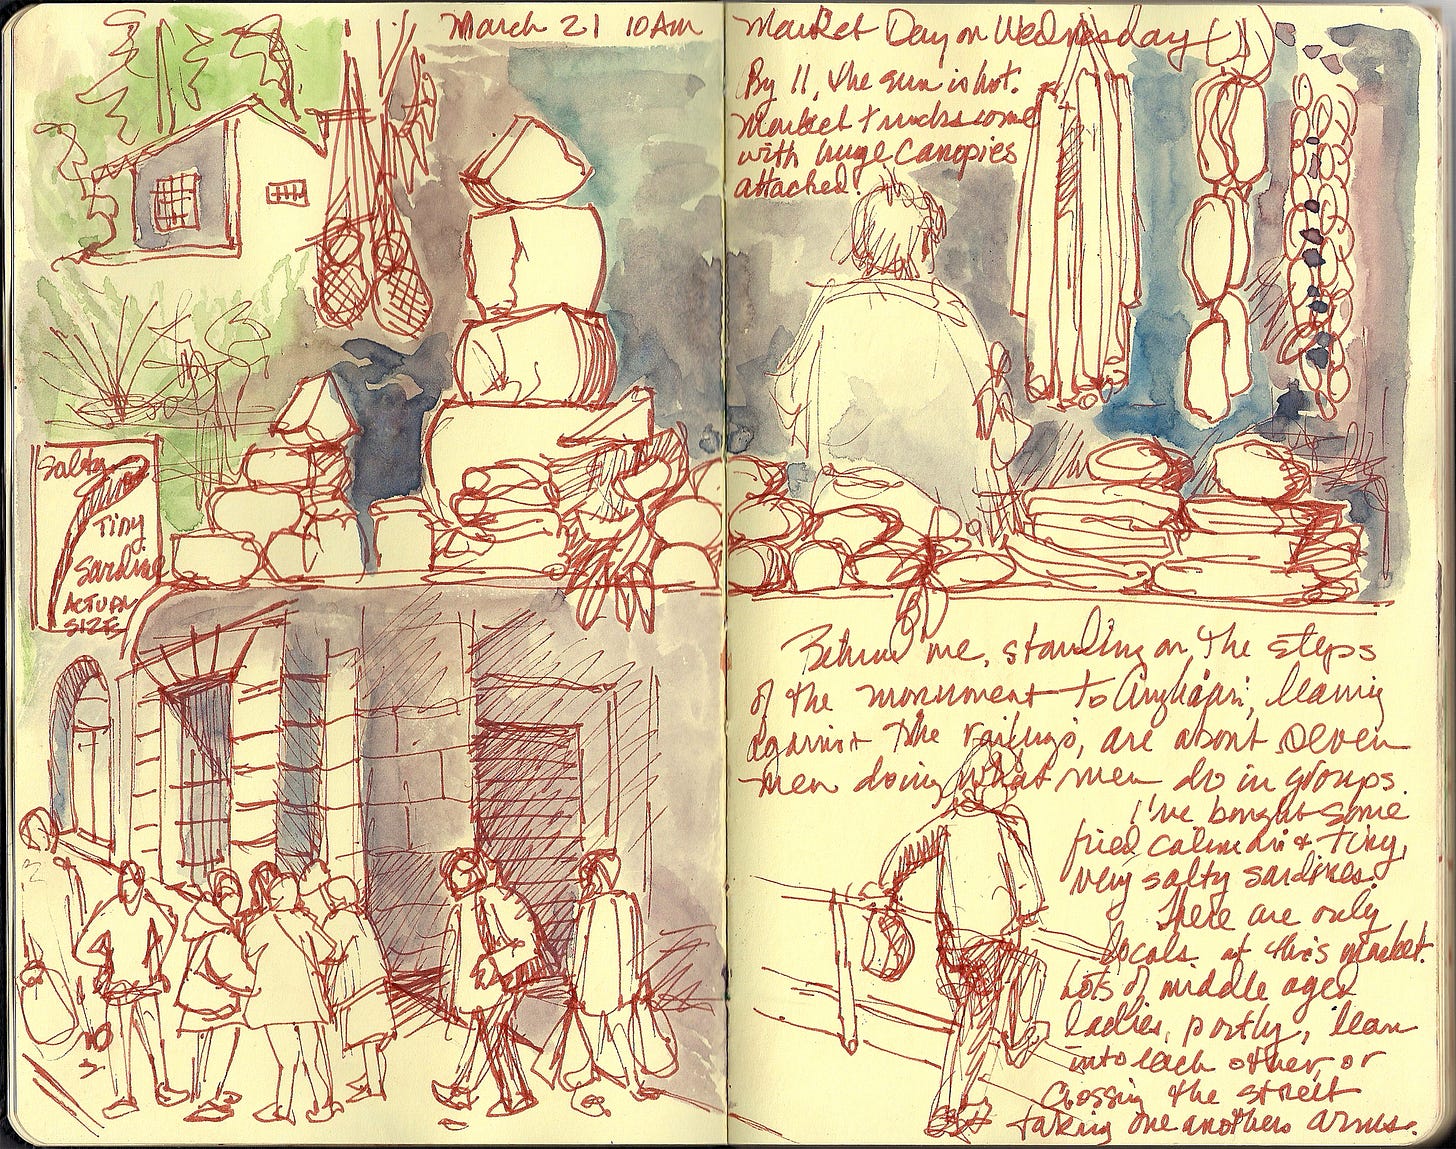 March 21 10AM
Market Day on Wednesday
By 11, the sun is hot.
Market trucks come
with huge canopies
attached.
Salty
Tiny
Sardine
ACTUAL
SIZE
Behind me, standing on the steps
of the monument to leaning
against the railings, are about seven
men doing what men do in groups.
I've bought some
fried calamari & tiny,
very salty sardines.
There are only
locals at this market.
Lots of middle aged
ladies, portly, lean
into each other, or
crossing the street
taking one anothers arms.